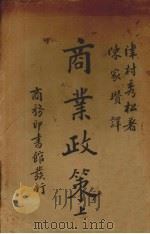 津村秀松著
陳家瓚譯
商業政策上
商務印書館發行
mtoou.info mtoou.info